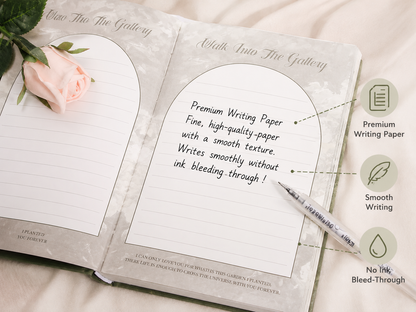 The Gallery
I PLANTED
YOU FOREVER
Walk Into The Gallery
Premium Writing Paper
Fine, high-quality-paper
with a smooth texture.
Writes smoothly without
ink bleeding-through !
I CAN ONLY LOVE YOU FOR THIS GARDEN I PLANTED
THE UNIVERSE WITH YOU FOREVER.
Premium
Writing Paper
Smooth
Writing
No Ink
Bleed-Through